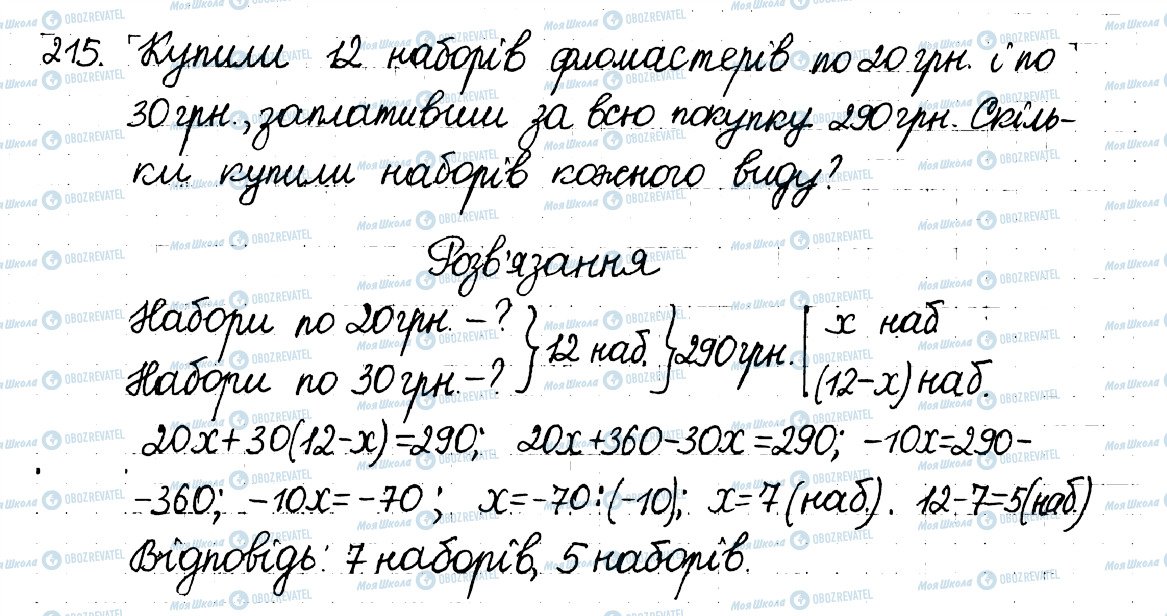 215. Купили 12 наборів фломастерів по 20 грн. і по
30 грн., заплативши за всю покупку 290 грн. Скіль-
ки купили наборів кожного виду?
Розв'язання
Набори по 20 грн. - ? } 12 наб. } 290 грн. | x наб
Набори по 30 грн. - ? (12-x) наб.
20x+30(12-x)=290; 20x+360-30x=290; -10x=290-
-360; -10x=-70; x=-70:(-10); x=7 (наб.). 12-7=5(наб.)
Відповідь: 7 наборів, 5 наборів.